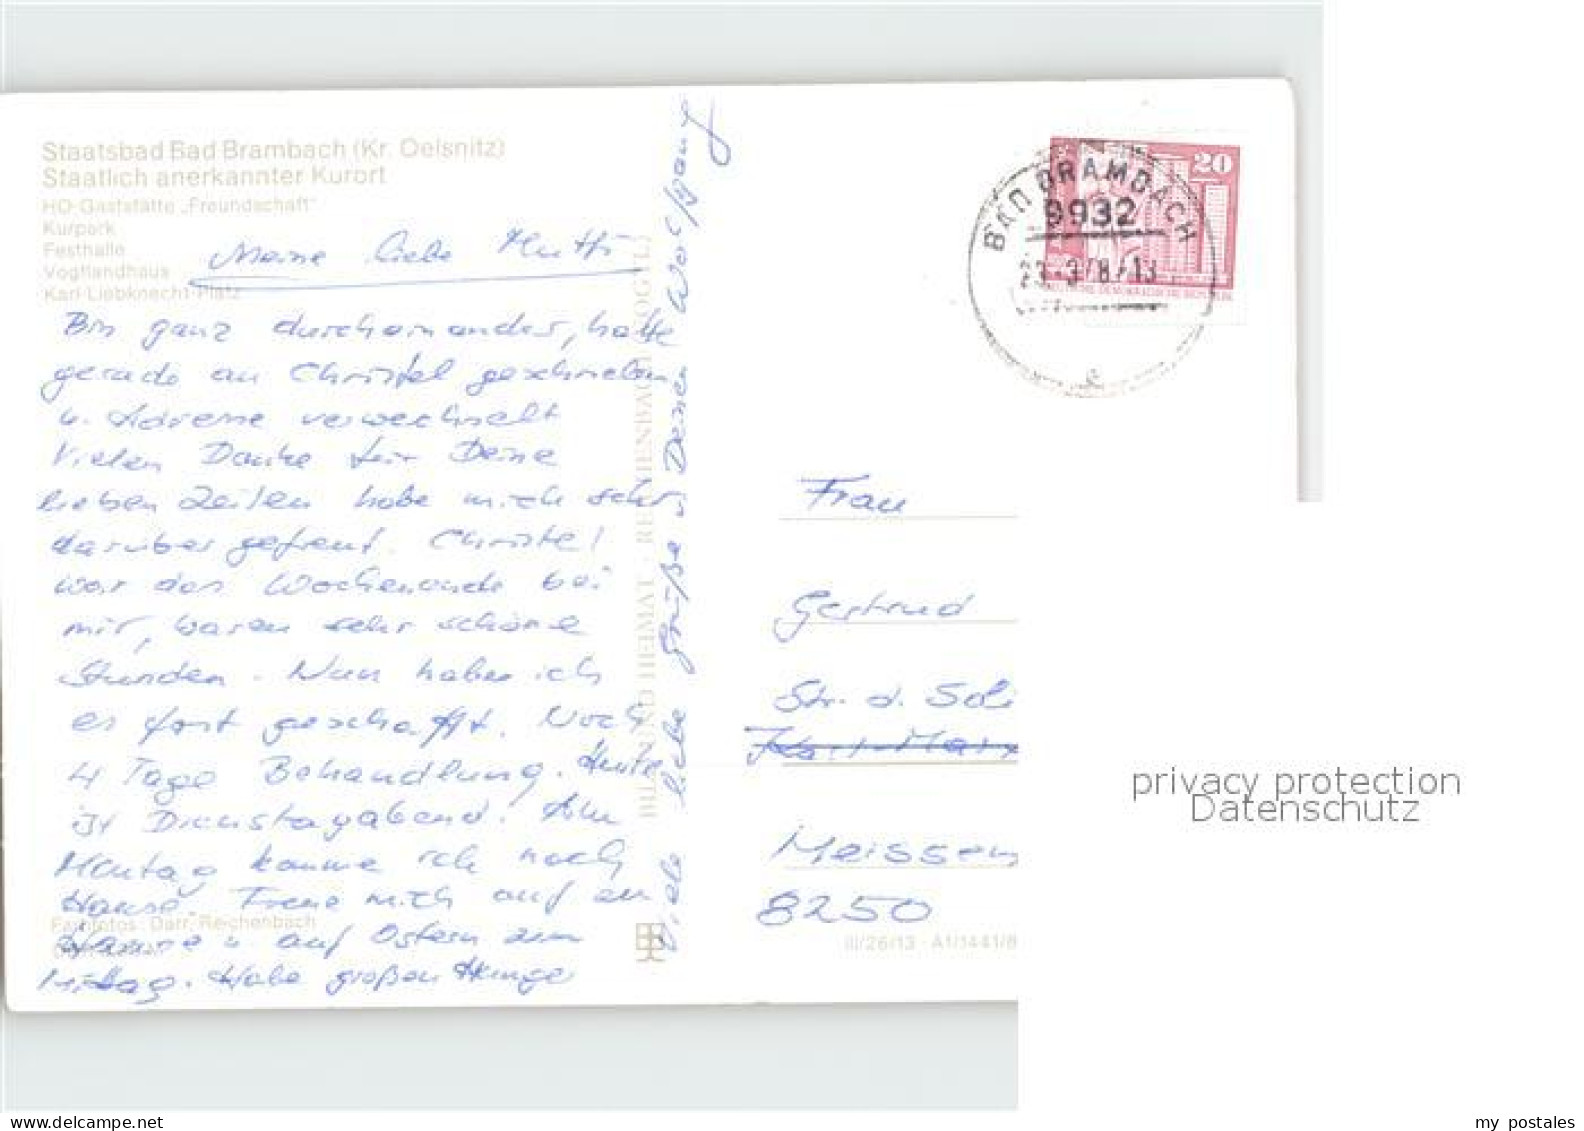 Staatsbad Bad Brambach (Kr. Oelsnitz)
Staatlich anerkannter Kurort
HO-Gaststätte „Freundschaft"
Kurpark
Festhalle
Vogtlandhaus
Karl-Liebknecht-Platz
Meine liebe Mutti
Bin ganz durcheinander, hatte
gerade an Christel geschrieben
u. Adresse verwechselt
Vielen Dank für Deine
lieben Zeilen habe mich sehr
darüber gefreut. Christel
war das Wochenende bei
mir, waren sehr schöne
Stunden. Nun habe ich
es fast geschafft. Noch
4 Tage Behandlung. Heute
ist Dienstagabend. Am
Montag komme ich nach
Hause. Freue mich auf zu
Hause u. auf Ostern zum
Mittag. Habe großen Hunger
Farbfotos: Darr, Reichenbach
Viele liebe Grüße v. Deinen Wolfgang
BILD UND HEIMAT · REICHENBACH (VOGTL)
BAD BRAMBACH
9932
20
DEMOKRATISCHE REPUBLIK
Frau
Gertrud
Str. d. Soli
Karl-Marx
Meissen
8250
III/26/13 · A1/1441/8
privacy protection
Datenschutz
my postales